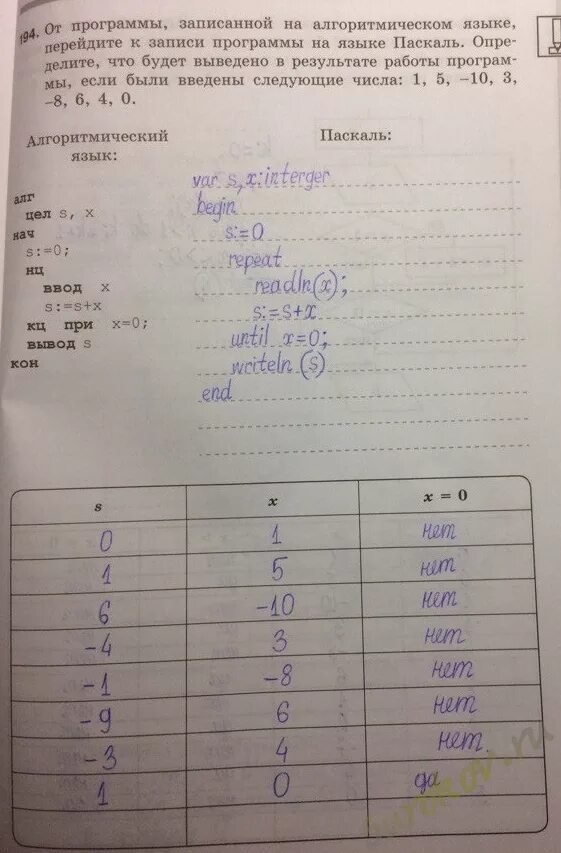 194. От программы, записанной на алгоритмическом языке,
перейдите к записи программы на языке Паскаль. Опре-
делите, что будет выведено в результате работы програм-
мы, если были введены следующие числа: 1, 5, –10, 3,
–8, 6, 4, 0.
Алгоритмический
язык:
Паскаль:
алг
цел s, x
нач
s:=0;
нц
ввод x
s:=s+x
кц при x=0;
вывод s
кон
var s, x:interger
begin
s:=0
repeat
readln(x);
s:=s+x
until x=0;
writeln (s)
end
s x x = 0
0 1 нет
1 5 нет
6 -10 нет
-4 3 нет
-1 -8 нет
-9 6 нет
-3 4 нет.
1 0 да